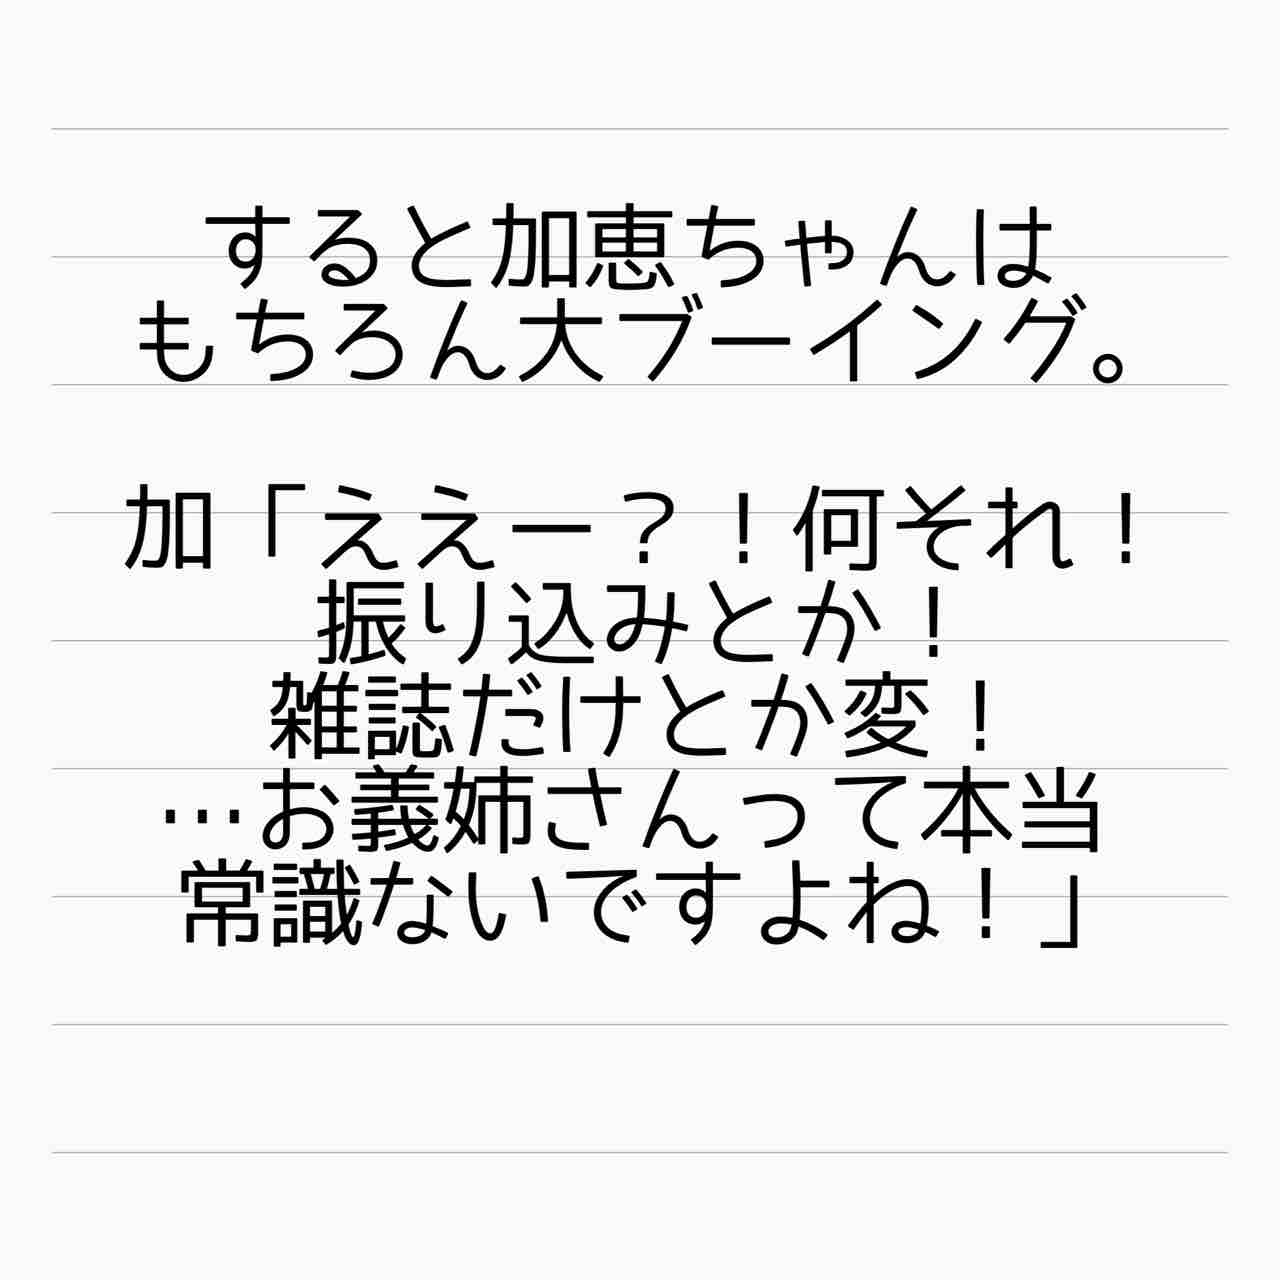 すると加恵ちゃんは
もちろん大ブーイング。
加「ええー？！何それ！
振り込みとか！
雑誌だけとか変！
…お義姉さんって本当
常識ないですよね！」